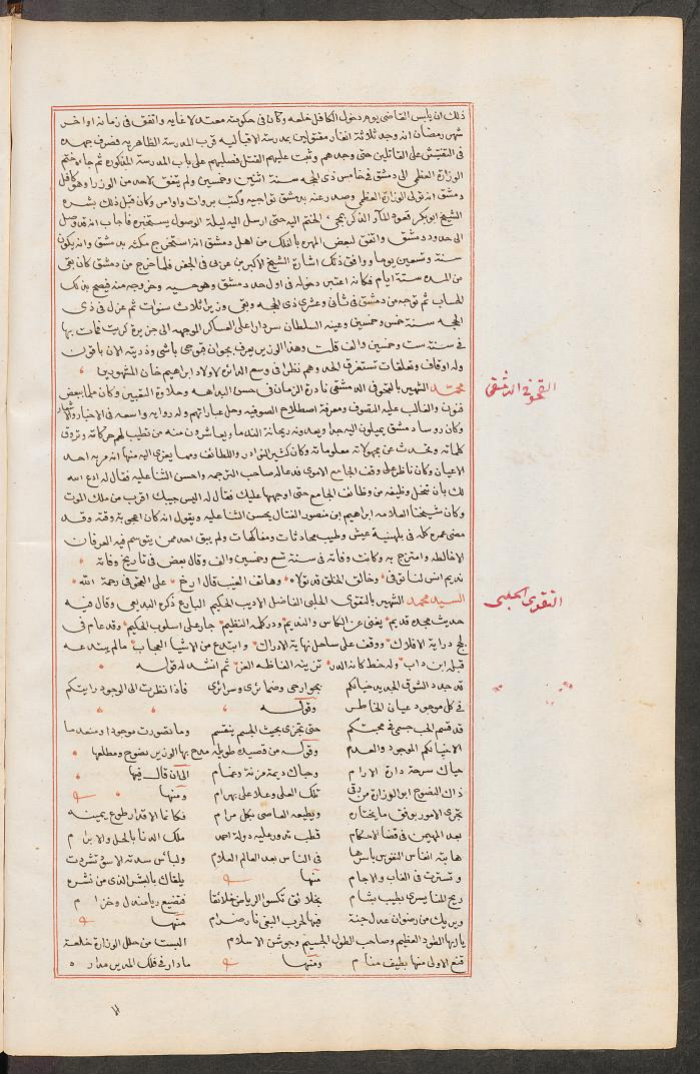 ذلك ان يلبس القاضي يوم دخول الكافل خلعه وكان في حكومته معتدلا لغايه واتفق في زمانه اواخر
شهر رمضان انه وجد ثلاثة انفار مقتولين بمدرسة الاقباليه قرب المدرسة الظاهريه فصرف جهده
في التفتيش على القاتلين حتى وجدهم وثبت عليهم القتل فصلبهم على باب المدرسة المذكوره ثم جاءه ختم
الوزارة العظمى الى دمشق في خامس ذي الحجه سنة اثنين وخمسين ولم يتفق لاحد من الوزرا وهو كافل
دمشق انه تولى الوزارة العظمى وصدر عنه بدمشق تواجيه وكتب بروات واوامر وكان قبل ذلك بشره
الشيخ ابو بكر قعود المار الذكر بمجي الختم اليه حتى ارسل اليه ليلة الوصول يستخبره فاجاب انه قد وصل
الى حدود دمشق واتفق لبعض المهره بالفلك من اهل دمشق انه استخرج مكثه بدمشق وانه يكون
سنة وتسعين يوما ووافق ذلك اشارة الشيخ الاكبر بن عربي في الجفر فلما خرج من دمشق كان بقي
من المده ستة ايام فكانه اعتبر دخوله في اول حد دمشق وهو حسيه وخروجه منه فيصح بذلك
الحساب ثم توجه من دمشق في ثاني وعشري ذي الحجه وبقي وزيرا ثلاث سنوات ثم عزل في ذي
الحجه سنة خمس وخمسين وعينه السلطان سردارا على العساكر الموجهه الى جزيرة كريت فمات بها
في سنة ست وخمسين والف قلت وهذا الوزير يعرف بجوان قبوجي باشي وذريته الان باقون
وله اوقاف وتعلقات تستغرق الحد وهم نظرا في وسع الدائرة لاولاد ابراهيم خان المشهورين
محمد الشهير بالقحوفي الدمشقي نادرة الزمان في حسن البداهه وحلاوة التعبير وكان ملما ببعض
فنون والغالب عليه التصوف ومعرفة اصطلاح الصوفيه وحل عباراتهم وله روايه واسعه في الاخبار والاشعار
وكان روسا دمشق يميلون اليه جدا ويعدونه ريحانة الندما ويعاشرون منه من تطيب لهم حركاته وتروق
كلماته وتحدث عن مجهولاته معلوماته وكان كثير النوادر واللطائف ومما يعزى اليه منها انه مر به احد
الاعيان وكان ناظرا على وقف الجامع الاموي فدعا له صاحب الترجمه واحسن الثنا عليه فقال له ادع الله
لك بان تنحل وظيفه من وظائف الجامع حتى اوجهها عليك فقال له اليس جيبك اقرب من ملك الموت
وكان شيخنا العلامه ابراهيم بن منصور الفتال يحسن الثنا عليه ويقول انه كان اعجوبة وقته وقد
مضى عمره كله في بلهنية عيش وطيب محادثات ومفاكهات ولم يبق احد ممن يتوسم فيه العرفان
الا خالطه وامتزج به وكانت وفاته في سنة تسع وخمسين والف وقال بعض في تاريخ وفاته
نديم انس لنا توفي وخالق الخلق قد تولاه وهاتف الغيب قال ارخ على القحوفي رحمة الله
السيد محمد الشهير بالتقوى الحلبي الفاضل الاديب الحكيم البارع ذكره البديعي وقال فيه
حديث مجده قديم يغني عن الكاس والنديم ودر كلمه النظيم جار على اسلوب الحكيم وقد عام في
لجج دراية الافلاك ووقف على ساحل نهاية الادراك وابتدع من الاشيا العجاب ما لم يبتدعه
قبله ابن داب وله خط كانه الدر تزينه الفاظه الغر ثم انشد له قوله
قد جدد الشوق الجديد خيالكم بجوارحي وضمائري وسرائري فاذا نظرت الى الوجود رايتكم
في كل موجود عيان الخاطر وقوله
قد قسم الحب جسمي في محبتكم حتى تجزى بحيث الجسم ينقسم وما تصورت موجودا ومنعدما
الا خيالكم الموجود والعدم وقوله من قصيده طويله مدح بها الوزير نصوح ومطلعها
حياك سرحة دارة الارام وحباك ديمة مزنة وغمام الى ان قال فيها
ذاك النصوح ابو الوزارة من رقى تلك العلى وعلا على بهرام ومنها
تجري الامور بوفق ما يختاره ويطيعه العاصي بكل مرام فكانما الاقدار طوع يمينه
بعد المهيمن في قضا الاحكام قطب تدور عليه دولة احمد ملك الدنا بالحل والابرام
هابته انفاس النفوس باسرها في الناس بعد العالم العلام ولباس سدته الاسود تشردت
وتسترت في الغاب والاجام منها يلقاك بالبشر الذي من نشره
ريح المنا يسري بطيب بشام بخلائق تكسو الرياض خلائقا فتضيع ريا مندل وخزام
ويريك من رضوان عدل جنة فيها لحرب البغي نار ضرام منها
يا ايها الطود العظيم وصاحب الطول الجسيم وجوشن الاسلام البست من حلل الوزارة خلعة
قنع الاولى منها بطيف منام ومنها ما دار في فلك المدير مداره
القحوفي الدمشقي
التقوى الحلبي